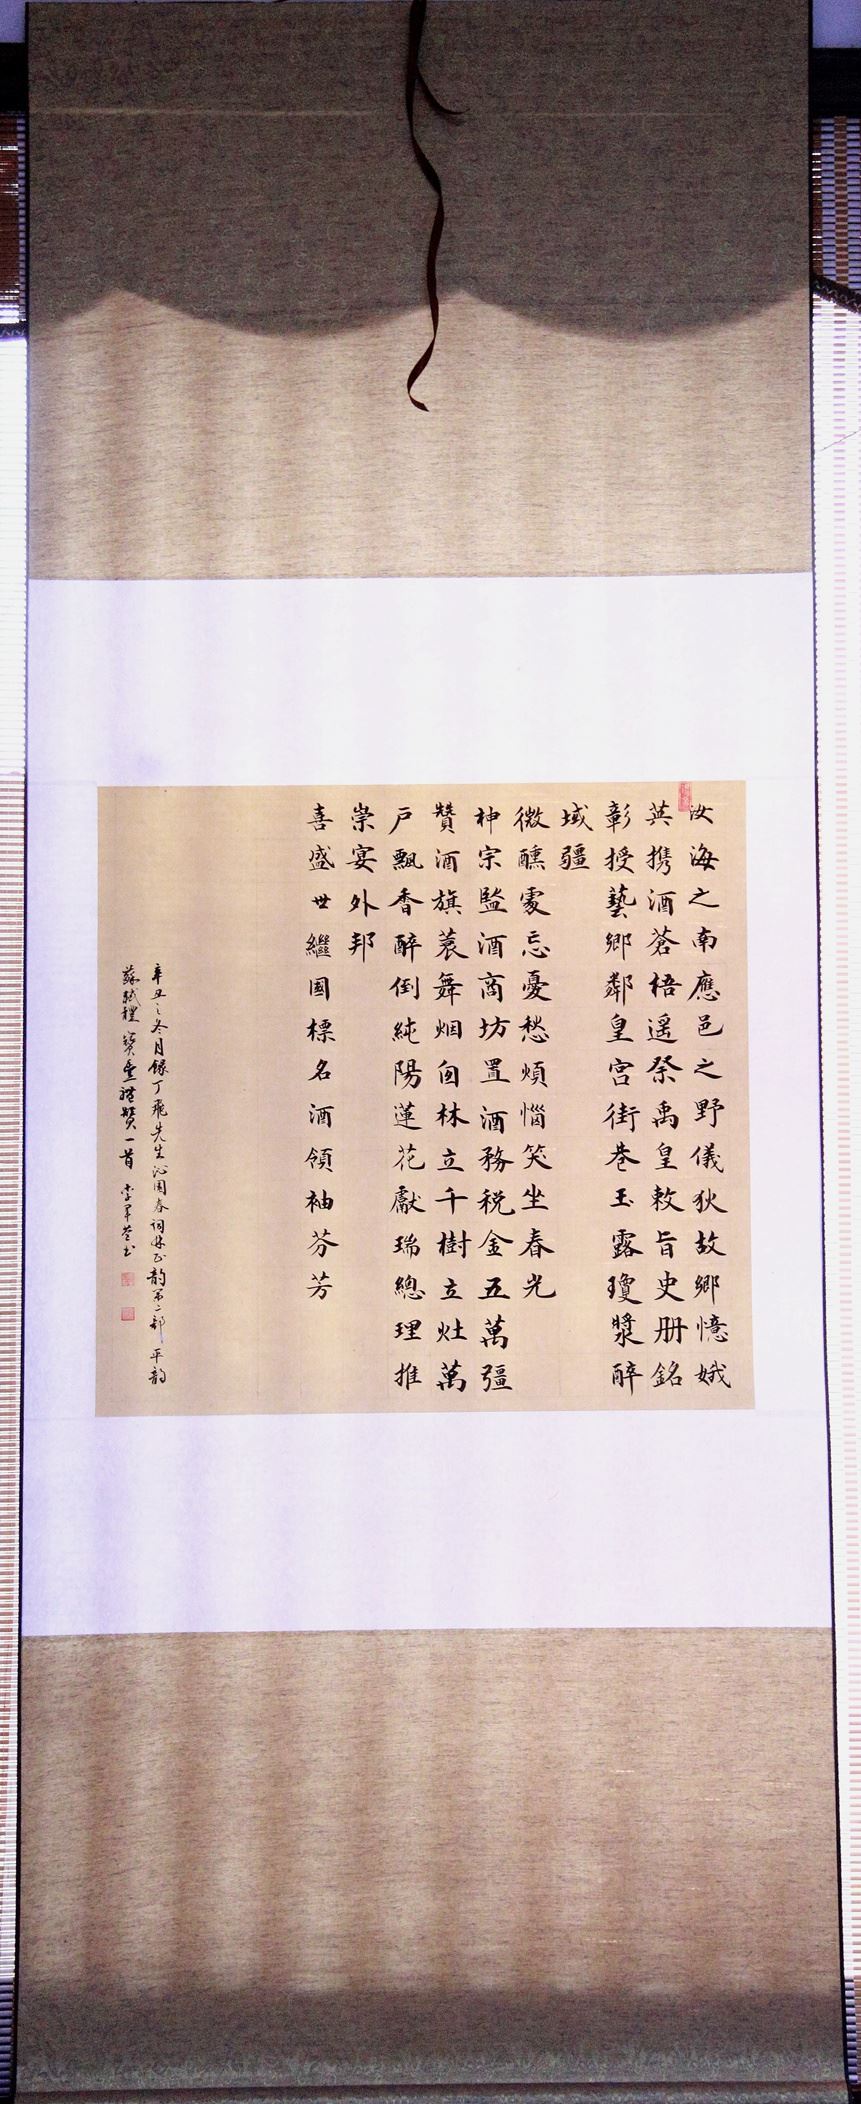 汝海之南應邑之野儀狄故鄉憶娥
英攜酒蒼梧遥祭禹皇敕旨史册銘
彰授藝鄉鄰皇宫街巷玉露瓊漿醉
域疆
微醺處忘憂愁煩惱笑坐春光
神宗監酒商坊置酒務税金五萬彊
贊酒旗蓑舞烟囱林立千樹立灶萬
户飄香醉倒純陽蓮花獻瑞總理推
崇宴外邦
喜盛世繼国標名酒領袖芬芳
辛丑之冬月録丁飛先生沁園春詞林正韵第二部平韵
蘇軾禮寶豊禮贊一首李軍營书